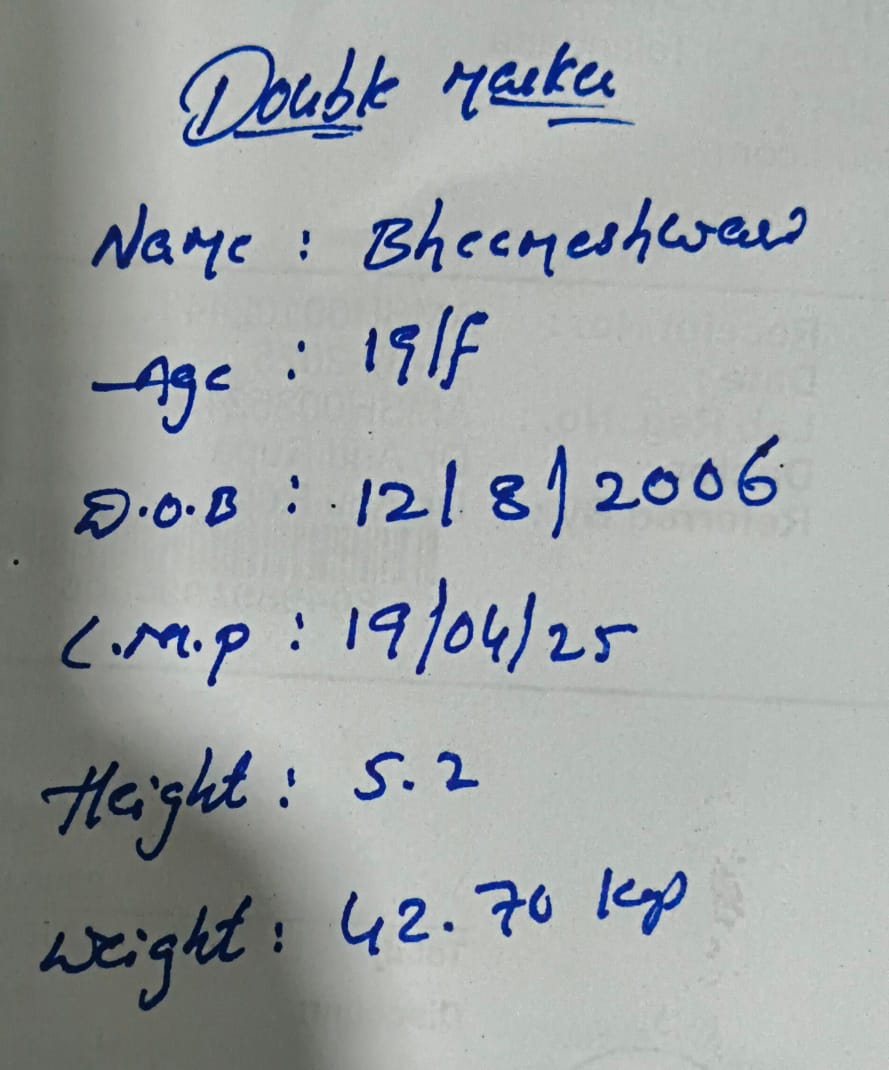 Double Marker
Name : Bheemeshwari
Age : 19/F
D.O.B : 12/8/2006
L.M.P : 19/04/25
Height : 5.2
Weight : 42.70 kgs